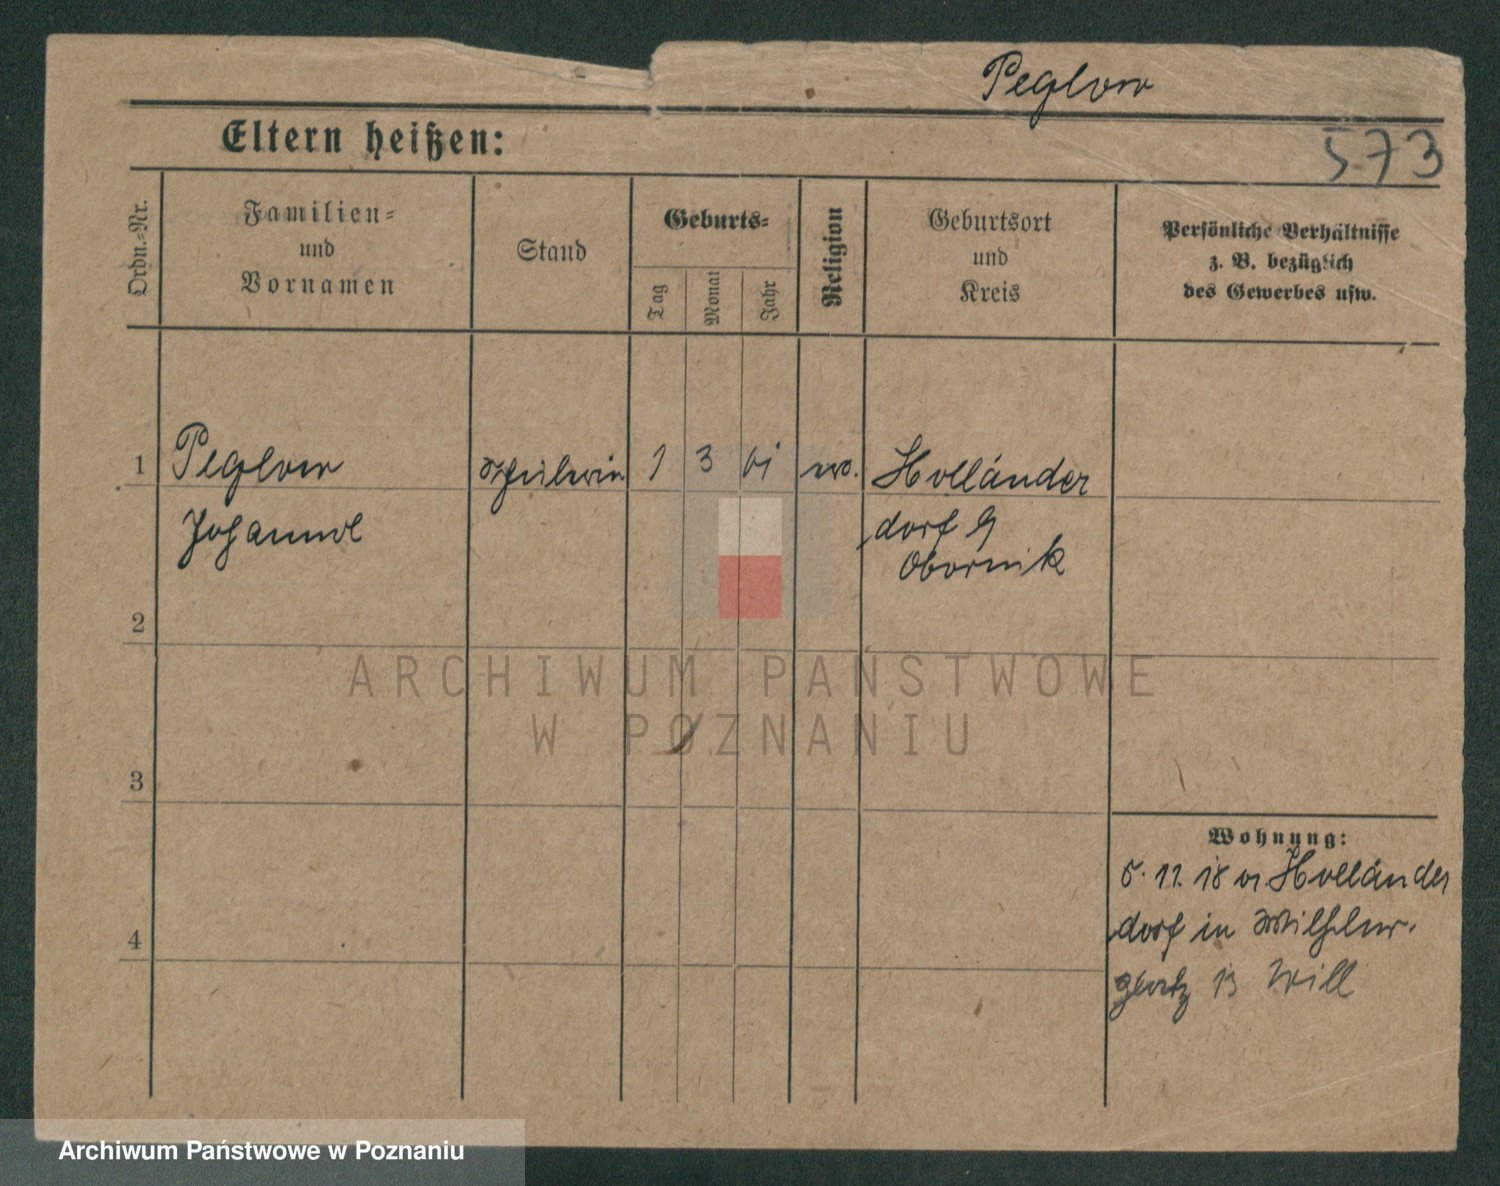 Peglow
573
Eltern heißen:
Ordn.-Nr.
Familien-
und
Vornamen
Stand
Geburts-
Tag
Monat
Jahr
Religion
Geburtsort
und
Kreis
Persönliche Verhältnisse
z. B. bezüglich
des Gewerbes usw.
1
Peglow
Schülerin
1
3
01
ev.
Holländer
Johanne
dorf
Obornik
2
ARCHIWUM PAŃSTWOWE
W POZNANIU
3
Wohnung:
5. 11. 18 v. Holländer
dorf in Wilhelm-
platz 13 Will
4
Archiwum Państwowe w Poznaniu